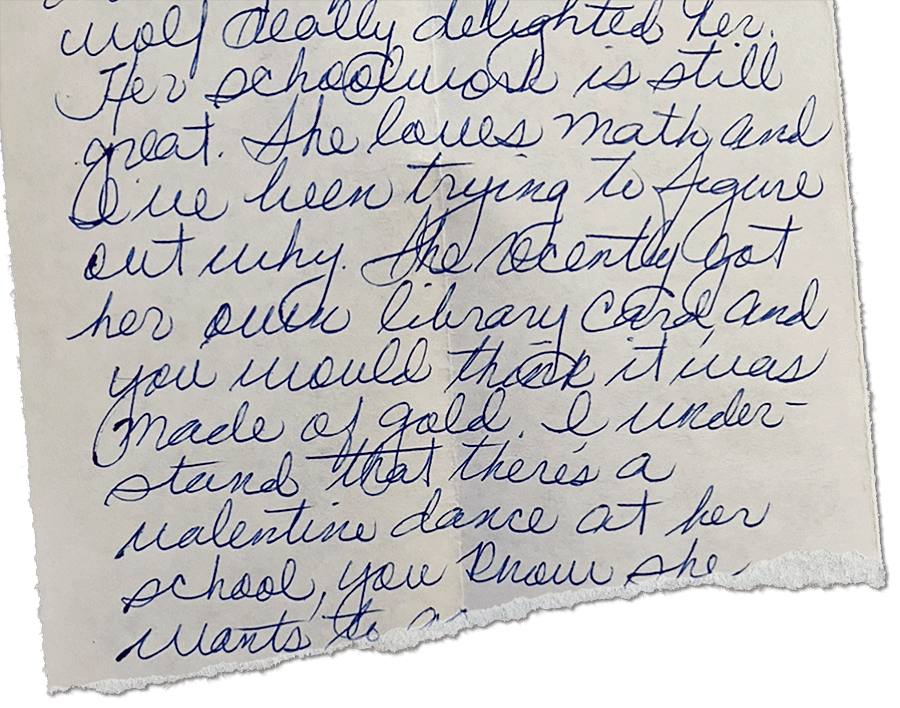 wolf really delighted her.
Her schoolwork is still
great. She loves math and
I've been trying to figure
out why. She recently got
her own library card and
you would think it was
made of gold. I under-
stand that there's a
valentine dance at her
school, you know she
wants to